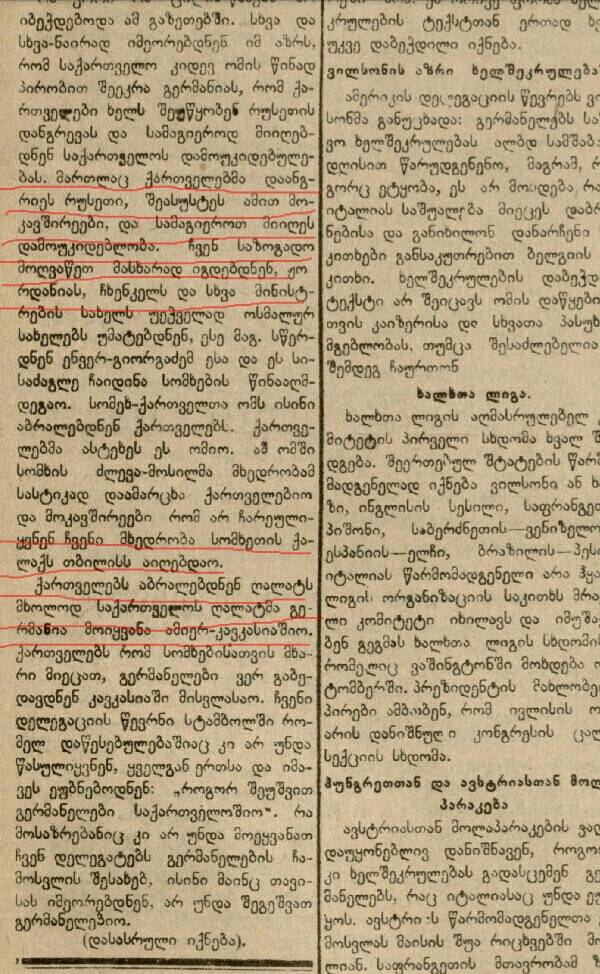 იბეჭდებოდა ამ გაზეთებში. სხვა და
სხვა-ნაირად იმეორებდნენ იმ აზრს,
რომ საქართველო კიდევ ომის წინად
პირობით შეეკრა გერმანიას, რომ ქა-
რთველები ხელს შეუწყობენ რუსეთის
დანგრევას და სამაგიეროდ მიიღებ-
დნენ საქართველოს დამოუკიდებულე-
ბას. მართლაც ქართველებმა დაანგ-
რიეს რუსეთი, შეასუსტეს ამით მო-
კავშირეები, და სამაგიეროთ მიიღეს
დამოუკიდებლობა. ჩვენ საზოგადო
მოღვაწეთ მასხარად იგდებდნენ, ჟო
რდანიას, ჩხენკელს და სხვა მინისტ-
რების სახელს უეჭველად ოსმალურ
სახელებს უმატებდნენ, ესე მაგ. სწერ-
დნენ ენვერ-გიორგაძემ ესა და ეს სი-
საძაგლე ჩაიდინა სომხების წინააღმ-
დეგაო. სომეხ-ქართველთა ომს ისინი
აბრალებდნენ ქართველებს. ქართვე-
ლებმა ასტეხეს ეს ომიო. ამ ომში
სომხის ძლევა-მოსილმა მხედრობამ
სასტიკად დაამარცხა ქართველებიო
და მოკავშირეები რომ არ ჩარეული-
ყვნენ ჩვენი მხედრობა სომხეთის ქა-
ლაქს თბილისს აიღებდაო.
ქართველებს აბრალებდნენ ღალატს
მხოლოდ საქართველოს ღალატმა გე-
რმანია მოიყვანა ამიერ-კავკასიაშიო.
ქართველებს რომ სომხებისათვის მხა-
რი მიეცათ, გერმანელები ვერ გაბე-
დავდნენ კავკასიაში მისვლასაო. ჩვენი
დელეგაციის წევრნი სტამბოლში რო-
მელ დაწესებულებაშიაც კი არ უნდა
წასულიყვნენ, ყველგან ერთსა და იმა-
ვეს ეუბნებოდნენ: „როგორ შეუშვით
გერმანელები საქართველოშიო“. რა
მოსაზრებანიც კი არ უნდა მოეყვანათ
ჩვენ დელეგატებს გერმანელების ჩა-
მოსვლის შესახებ, ისინი მაინც თავი-
სას იმეორებდნენ, არ უნდა შეგეშვათ
გერმანელებიო.
(დასასრული იქნება).
კრულების ტექსტთან ერთად
უკვე დაბეჭდილი იქნება.
ვილსონის აზრი ხელშეკრულება
ამერიკის დელეგაციის წევრებს ვი
სონმა განუცხადა: გერმანელებს სა
ვო ხელშეკრულებას ალბად სამშაბა
დღისით წარუდგენენო, მაგრამ, რ
გორც ეტყობა, ეს არ მოხდება რა
იტალიას საშუალება მიეცეს დაბრ
ნებისა და განიხილონ დანარჩენი
კითხები განსაკუთრებით ბელგიის
კითხი. ხელშეკრულების დაბეჭდ
ტექსტი არ შეიცავს ომის დაწყები
თვის კაიზერისა და სხვათა პასუხ
მგებლობას, თუმცა შესაძლებელია
შემდეგ ჩაურთონ
ხალხთა ლიგა.
ხალხთა ლიგის აღმასრულებელ
მიტეტის პირველი სხდომა ხვალ შ
დგება. შეერთებულ შტატების წარმ
მადგენელად იქნება ვილსონი ან ხა
ზი, ინგლისის სესილი, საფრანგეთ
პიშონი, საბერძნეთის—ვენიზელო
ესპანიის—ელჩი, ბრაზილის—პეს
იტალიას წარმომადგენელი არა ჰყა
ლიგის ორგანიზაციის საკითხს მრა
ლი კომიტეტი იხილავს და იმუშა
ბენ გეგმას ხალხთა ლიგის სხდომის
რომელიც ვაშინგტონში მოხდება ო
ტომბერში. პრეზიდენტის მახლობე
პირები ამბობენ, რომ ივლისის
არის დანიშნული კონგრესის ცალ
სექციის სხდომა.
ჰუნგრეთთან და ავსტრიასთან მოლ
პარაკება
ავსტრიასთან მოლაპარაკების ვად
დაუყონებლივ დანიშნავენ, როგო
კი ხელშეკრულებას გადასცემენ გე
მანელებს, რაც იტალიასაც უნდა ეუ
ყოს. წარმომადგენელთა
მოსვლას მაისის შუა რიცხვებში მო
ლიან. საფრანგეთის მთავრობამ